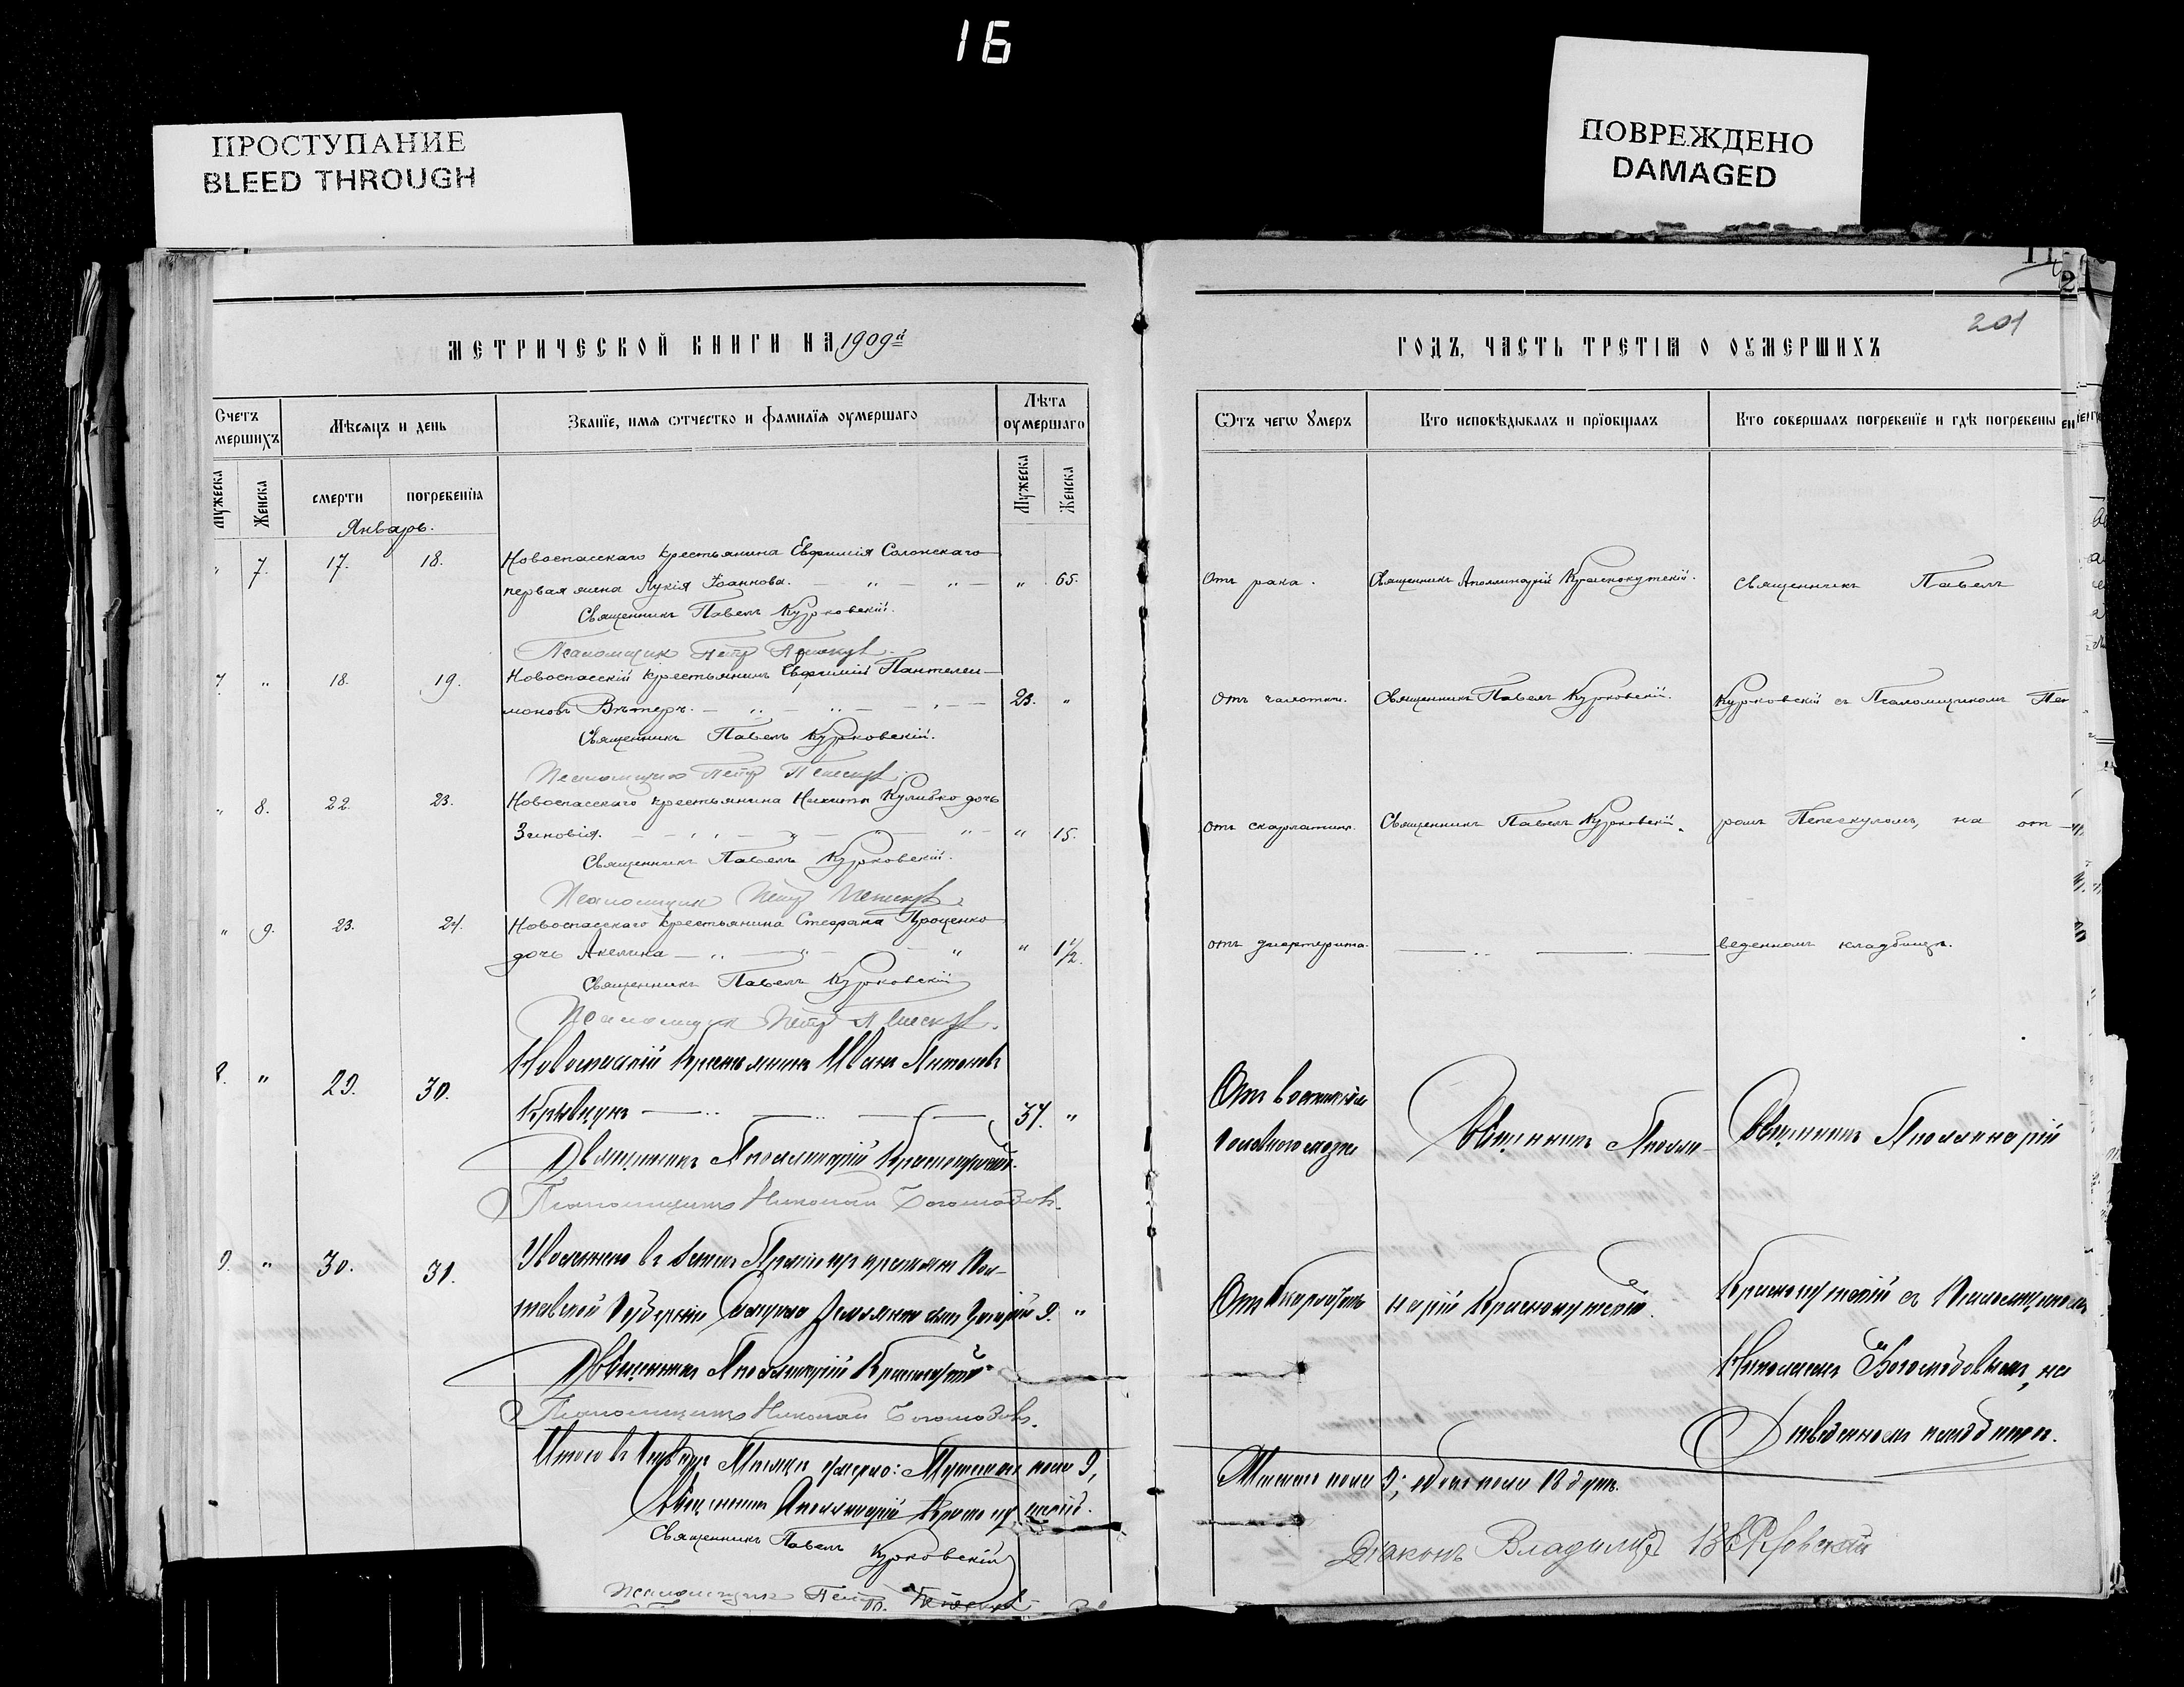 16
ПРОСТУПАНИЕ
BLEED THROUGH
ПОВРЕЖДЕНО
DAMAGED
201
МЕТРИЧЕСКОЙ КНИГИ НА 1909й
Счетъ
мершихъ
Мѣсяцъ и день
Званіе, имя ѿчество и фамилія оумершаго
Лѣта
оумершаго
Мужеска
Женска
смерти
погребенія
Мужеска
Женска
Январь.
" 7. 17. 18. Новоспасскаго крестьянина Евфимія Солонскаго
первая жена Лукія Іоаннова. — " — " — " 65.
Священникъ Павелъ Курковскій.
Псаломщик Петр
7 " 18. 19. Новоспасскій крестьянинъ Евфимій Пантелеи-
моновъ Вѣтеръ. — " — " — 23. "
Священникъ Павелъ Курковскій.
Псаломщик Петр
" 8. 22. 23. Новоспасскаго крестьянина Никиты Кулибко дочь
Зиновія. — " — " — " 15.
Священникъ Павелъ Курковскій.
Псаломщик Петр
" 9. 23. 24. Новоспасскаго крестьянина Стефана Проценко
дочь Акелина — " — " " 1 1/2.
Священникъ Павелъ Курковскій
Псаломщик Петр
8. " 29. 30. Новоспасскій крестьянинъ Иванъ Антоновъ
37. "
Священникъ Аполлинарій Краснокутскій.
Псаломщикъ Николай Богомазовъ.
9. " 30. 31. Уволеннаго въ запас Арміи из крестьян Пол-
тавской Губерніи сын 9. "
Священникъ Аполлинарій Краснокутскій
Псаломщикъ Николай Богомазовъ.
Итого въ Январѣ Мѣсяцѣ умерло: Мужескаго пола 9,
Священникъ Аполлинарій Краснокутскій.
Священникъ Павелъ Курковскій
Псаломщик Петр
ГОДЪ, ЧАСТЬ ТРЕТІЯ О ОУМЕРШИХЪ
Ѿтъ чегѡ умеръ
Кто исповѣдывалъ и пріобщалъ
Кто совершалъ погребеніе и гдѣ погребены
Отъ рака. Священникъ Аполлинарій Краснокутскій. Священникъ Павелъ
Отъ чахотки. Священникъ Павелъ Курковскій. Курковскій съ Псаломщикомъ Пет
Отъ скарлатины. Священникъ Павелъ Курковскій. ромъ Пепескуломъ, на от-
отъ дифтерита. — " — " — веденномъ кладбищѣ.
Отъ воспаленія
головного мозга Священникъ Аполли- Священникъ Аполлинарій
Отъ нарій Краснокутскій. Краснокутскій съ Псаломщикомъ
Николаемъ Богомазовымъ, на
Отведенномъ кладбищѣ.
Женскаго пола 9; обоего пола 18 душъ.
Діаконъ Владиміръ